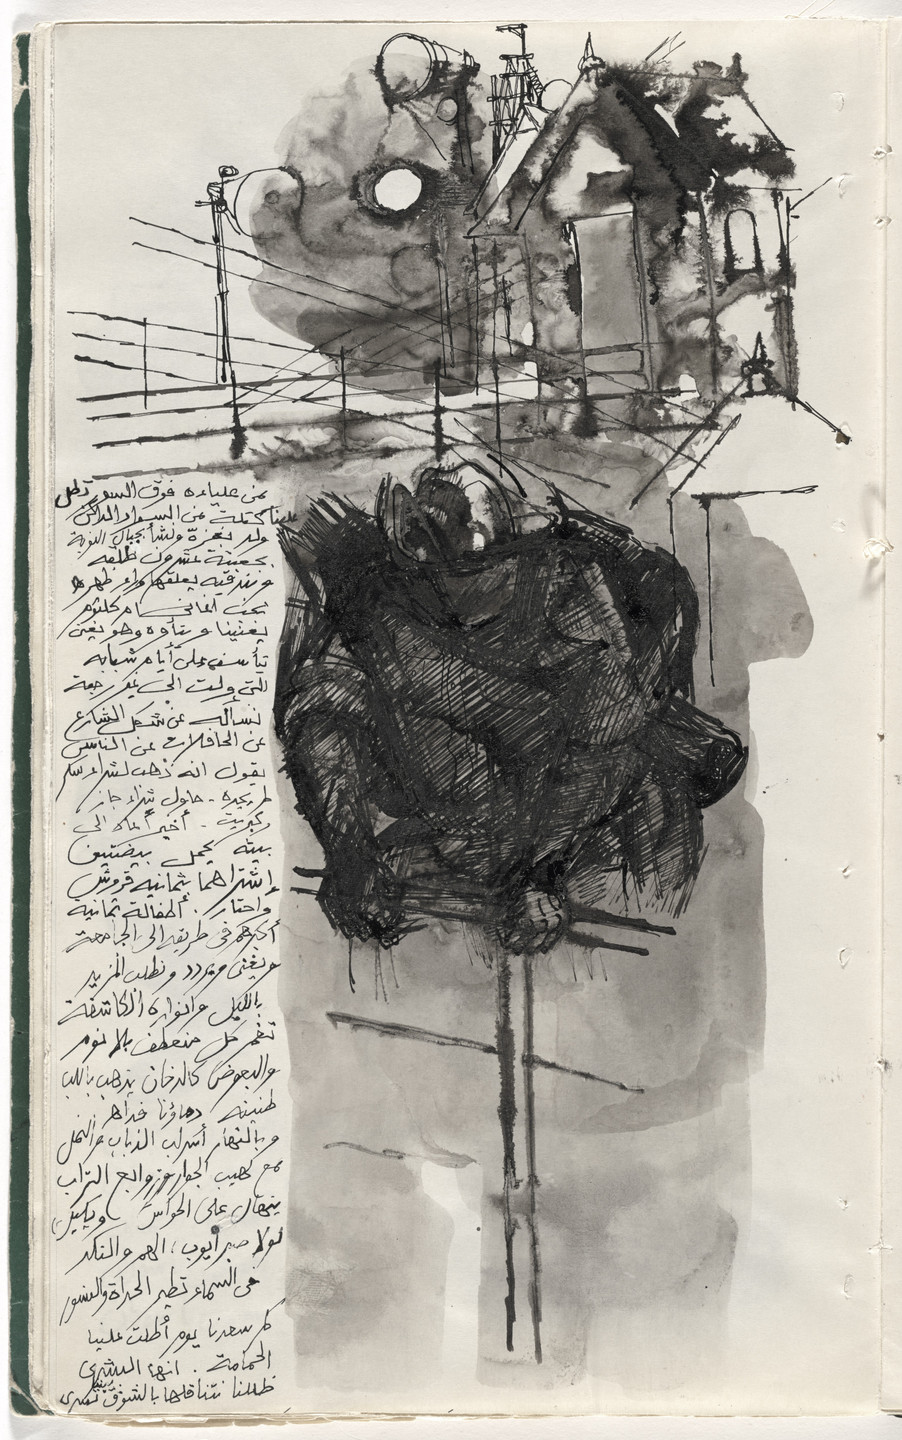 من علياءه فوق السور تطل
علينا كتلة من السواد الداكن
ولد بغزة ونشأ بجبال النوبة
بجعبته عشرون طلقه
وبندقيه يعلقها وراء ظهره
يحب أغاني ام كلثوم
يغنينا ويتأوه وهو يغنى
تيأسف على أيام شبابه
التى ولت الى غير رجعة
نسأله عن شكل الشارع
عن الحافلات عن الناس
يقول انه ذهب لشراء سكر
فلم يجده - حاول شراء جاز
وكبريت - أخيرا عاد الى
بيته يحمل بيضتين
إشتراهما بثمانيه قروش
وإحتار . أطفالة ثمانية
أكبرهم فى طريقه الى الجامعة
ويغنى ونردد ونطلب المزيد
بالليل وانواره الكاشفة
تغمر كل منعطف بلا نوم
والبعوض كالدخان يذهب باللب
طنينه دماؤنا غداه
وبالنهار أسراب الذباب والنمل
مع لهيب الجو وزوابع التراب
ينهال على الحواس
لولا صبر أيوب ، الهم والنكد
فى السماء تطير الحدأة والنسور
كم سعدنا يوم أطلت علينا
الحمامة . انها البشرى
ظللنا نتناقلها بالشوق